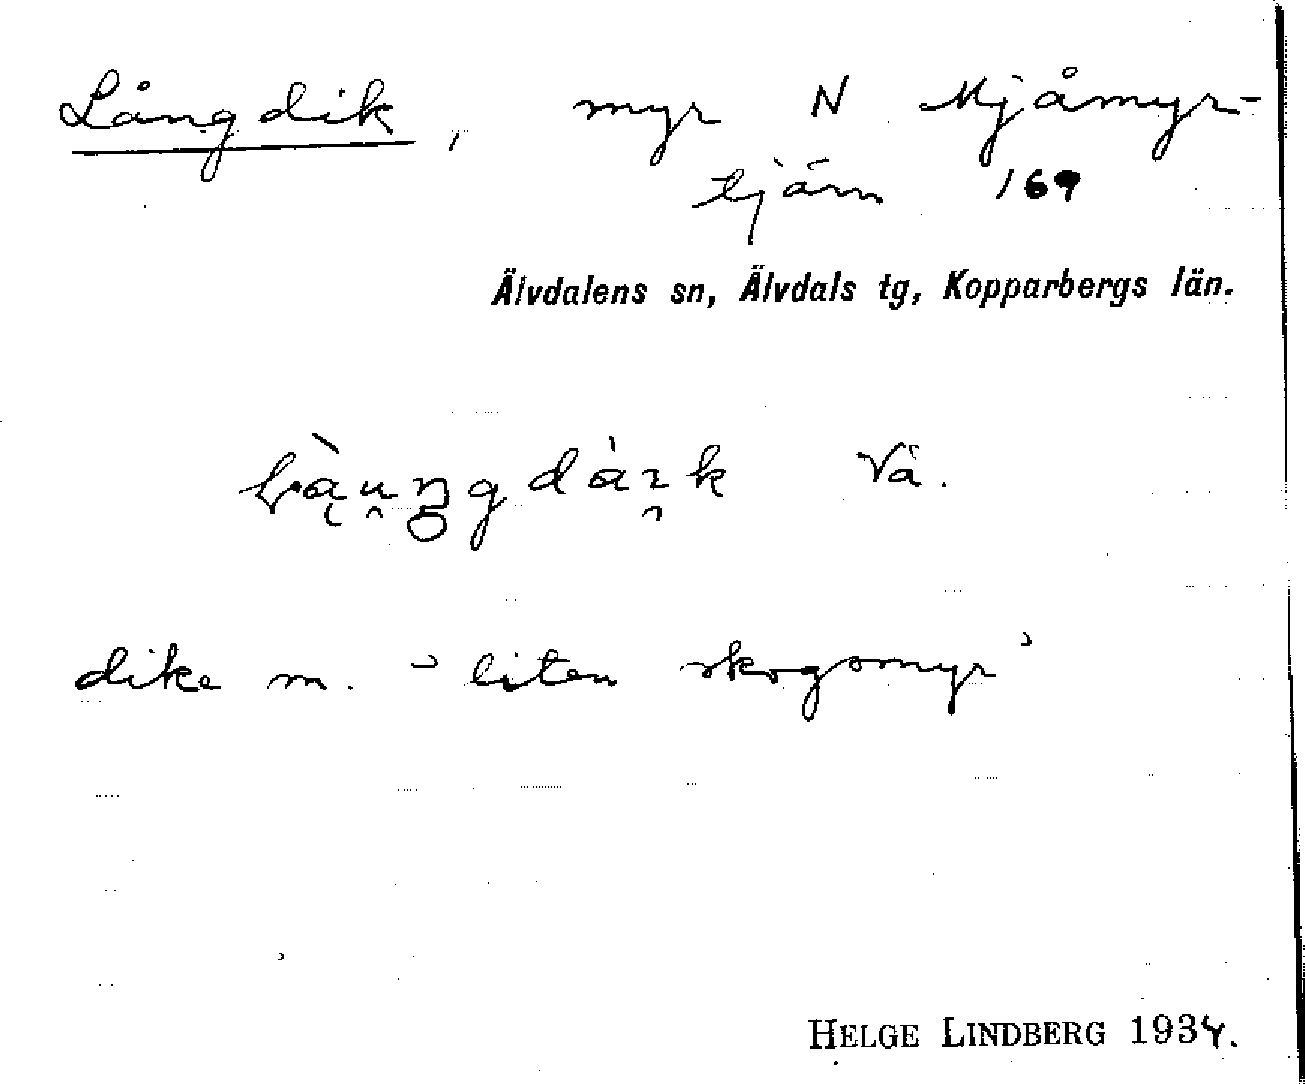 Långdik, myr N Mjåmyr-
tjärn 169
Älvdalens sn, Älvdals tg, Kopparbergs län.
Vä.
dike m. 'liten skogsmyr'
HELGE LINDBERG 1934.